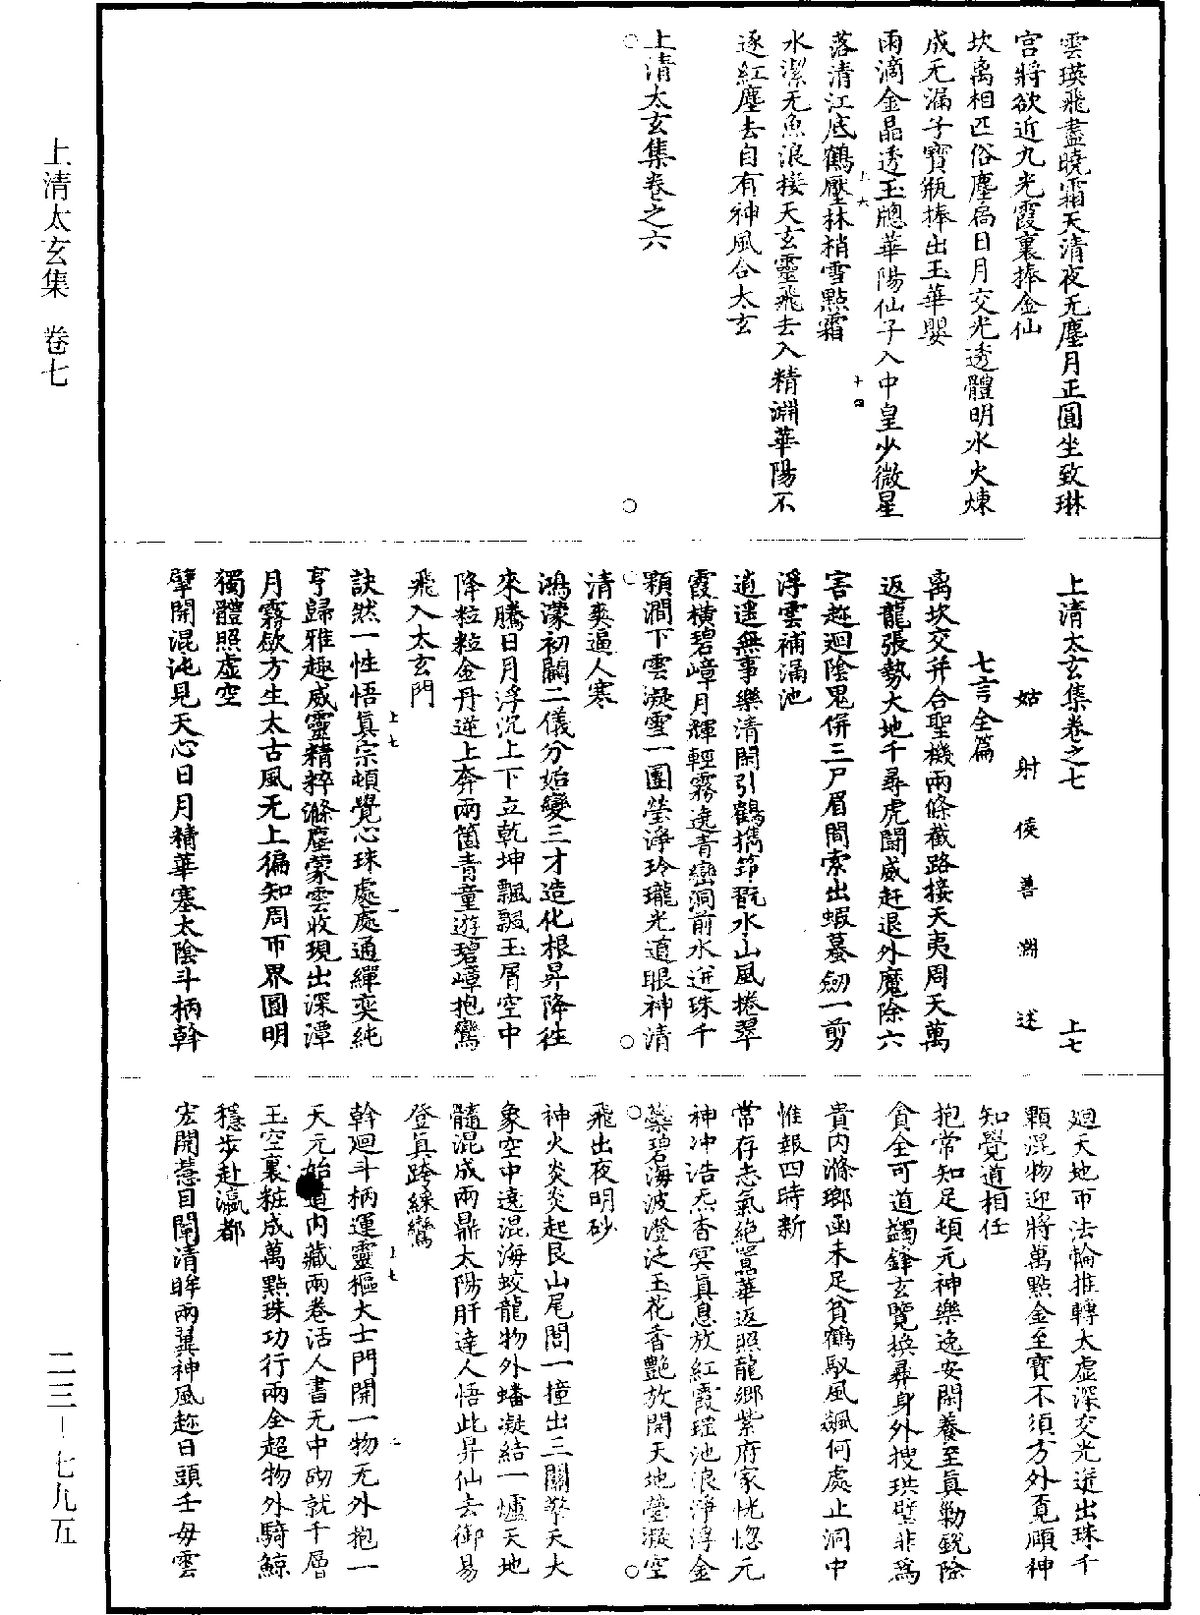 雲瑛飛盡曉霜天清夜无塵月正圓坐致琳
宮將欲近九光霞裏捧金仙
坎离相匹俗塵扃日月交光透體明水火煉
成无漏子寶瓶捧出玉華嬰
雨滴金晶透玉牕華陽仙子入中皇少微星
落清江底鶴壓林梢雪點霜
水潔无魚浪接天玄靈飛去入精淵華陽不
逐紅塵去自有神風合太玄
上清太玄集卷之六
上六
十四
上清太玄集卷之七
上七
姑射侯善淵述
七言全篇
离坎交并合聖機兩條截路接天夷周天萬
返龍張勢大地千尋虎鬭威赶退外魔除六
害趂迴陰鬼併三尸眉間索出蝦蟇劒一剪
浮雲補漏池
逍遥無事樂清閑引鶴擕笻翫水山風捲翠
霞橫碧嶂月輝輕霧遶青巒洞前水迸珠千
顆澗下雲凝雪一團瑩淨玲瓏光道眼神清
清爽逼人寒
鴻濛初闢二儀分始變三才造化根昇降往
來騰日月浮沉上下立乾坤飄飄玉屑空中
降粒粒金丹逆上奔兩箇青童遊碧嶂抱鸞
飛入太玄門
訣然一性悟眞宗頓覺心珠處處通繟奕純
亨歸雅趣威靈精粹滌塵蒙雲收現出深潭
月霧歛方生太古風无上徧知周帀界圓明
獨體照虛空
擘開混沌見天心日月精華塞太陰斗柄斡
上七
一
廻天地帀法輪推轉太虛深交光迸出珠千
顆混物迎將萬點金至寶不須方外覔頋神
知覺道相任
抱常知足頓元神樂逸安閑養至眞勦銳除
貪全可道蠲鋒玄覽換彛身外搜珙璧非爲
貴內滌瑯函未足貧鶴馭風飆何處止洞中
惟報四時新
常存志氣絶囂華返照龍鄉紫府家恍惚元
神冲浩炁杳冥眞息放紅霞瑤池浪淨浮金
蘂碧海波澄泛玉花香艷放開天地瑩凝空
飛出夜明砂
神火炎炎起艮山尾閭一撞出三關擎天大
象空中遶混海蛟龍物外蟠凝結一爐天地
髓混成兩鼎太陽肝達人悟此昇仙去御易
登眞跨綵鸞
斡廻斗柄運靈樞大士門開一物无外抱一
天元始道內藏兩卷活人書无中砌就千層
玉空裏粧成萬點珠功行兩全超物外騎鯨
穩步赴瀛都
宏開慧目闡清眸兩翼神風趂日頭壬毋雲
上七
二
上清太玄集　卷七
二三－七九五